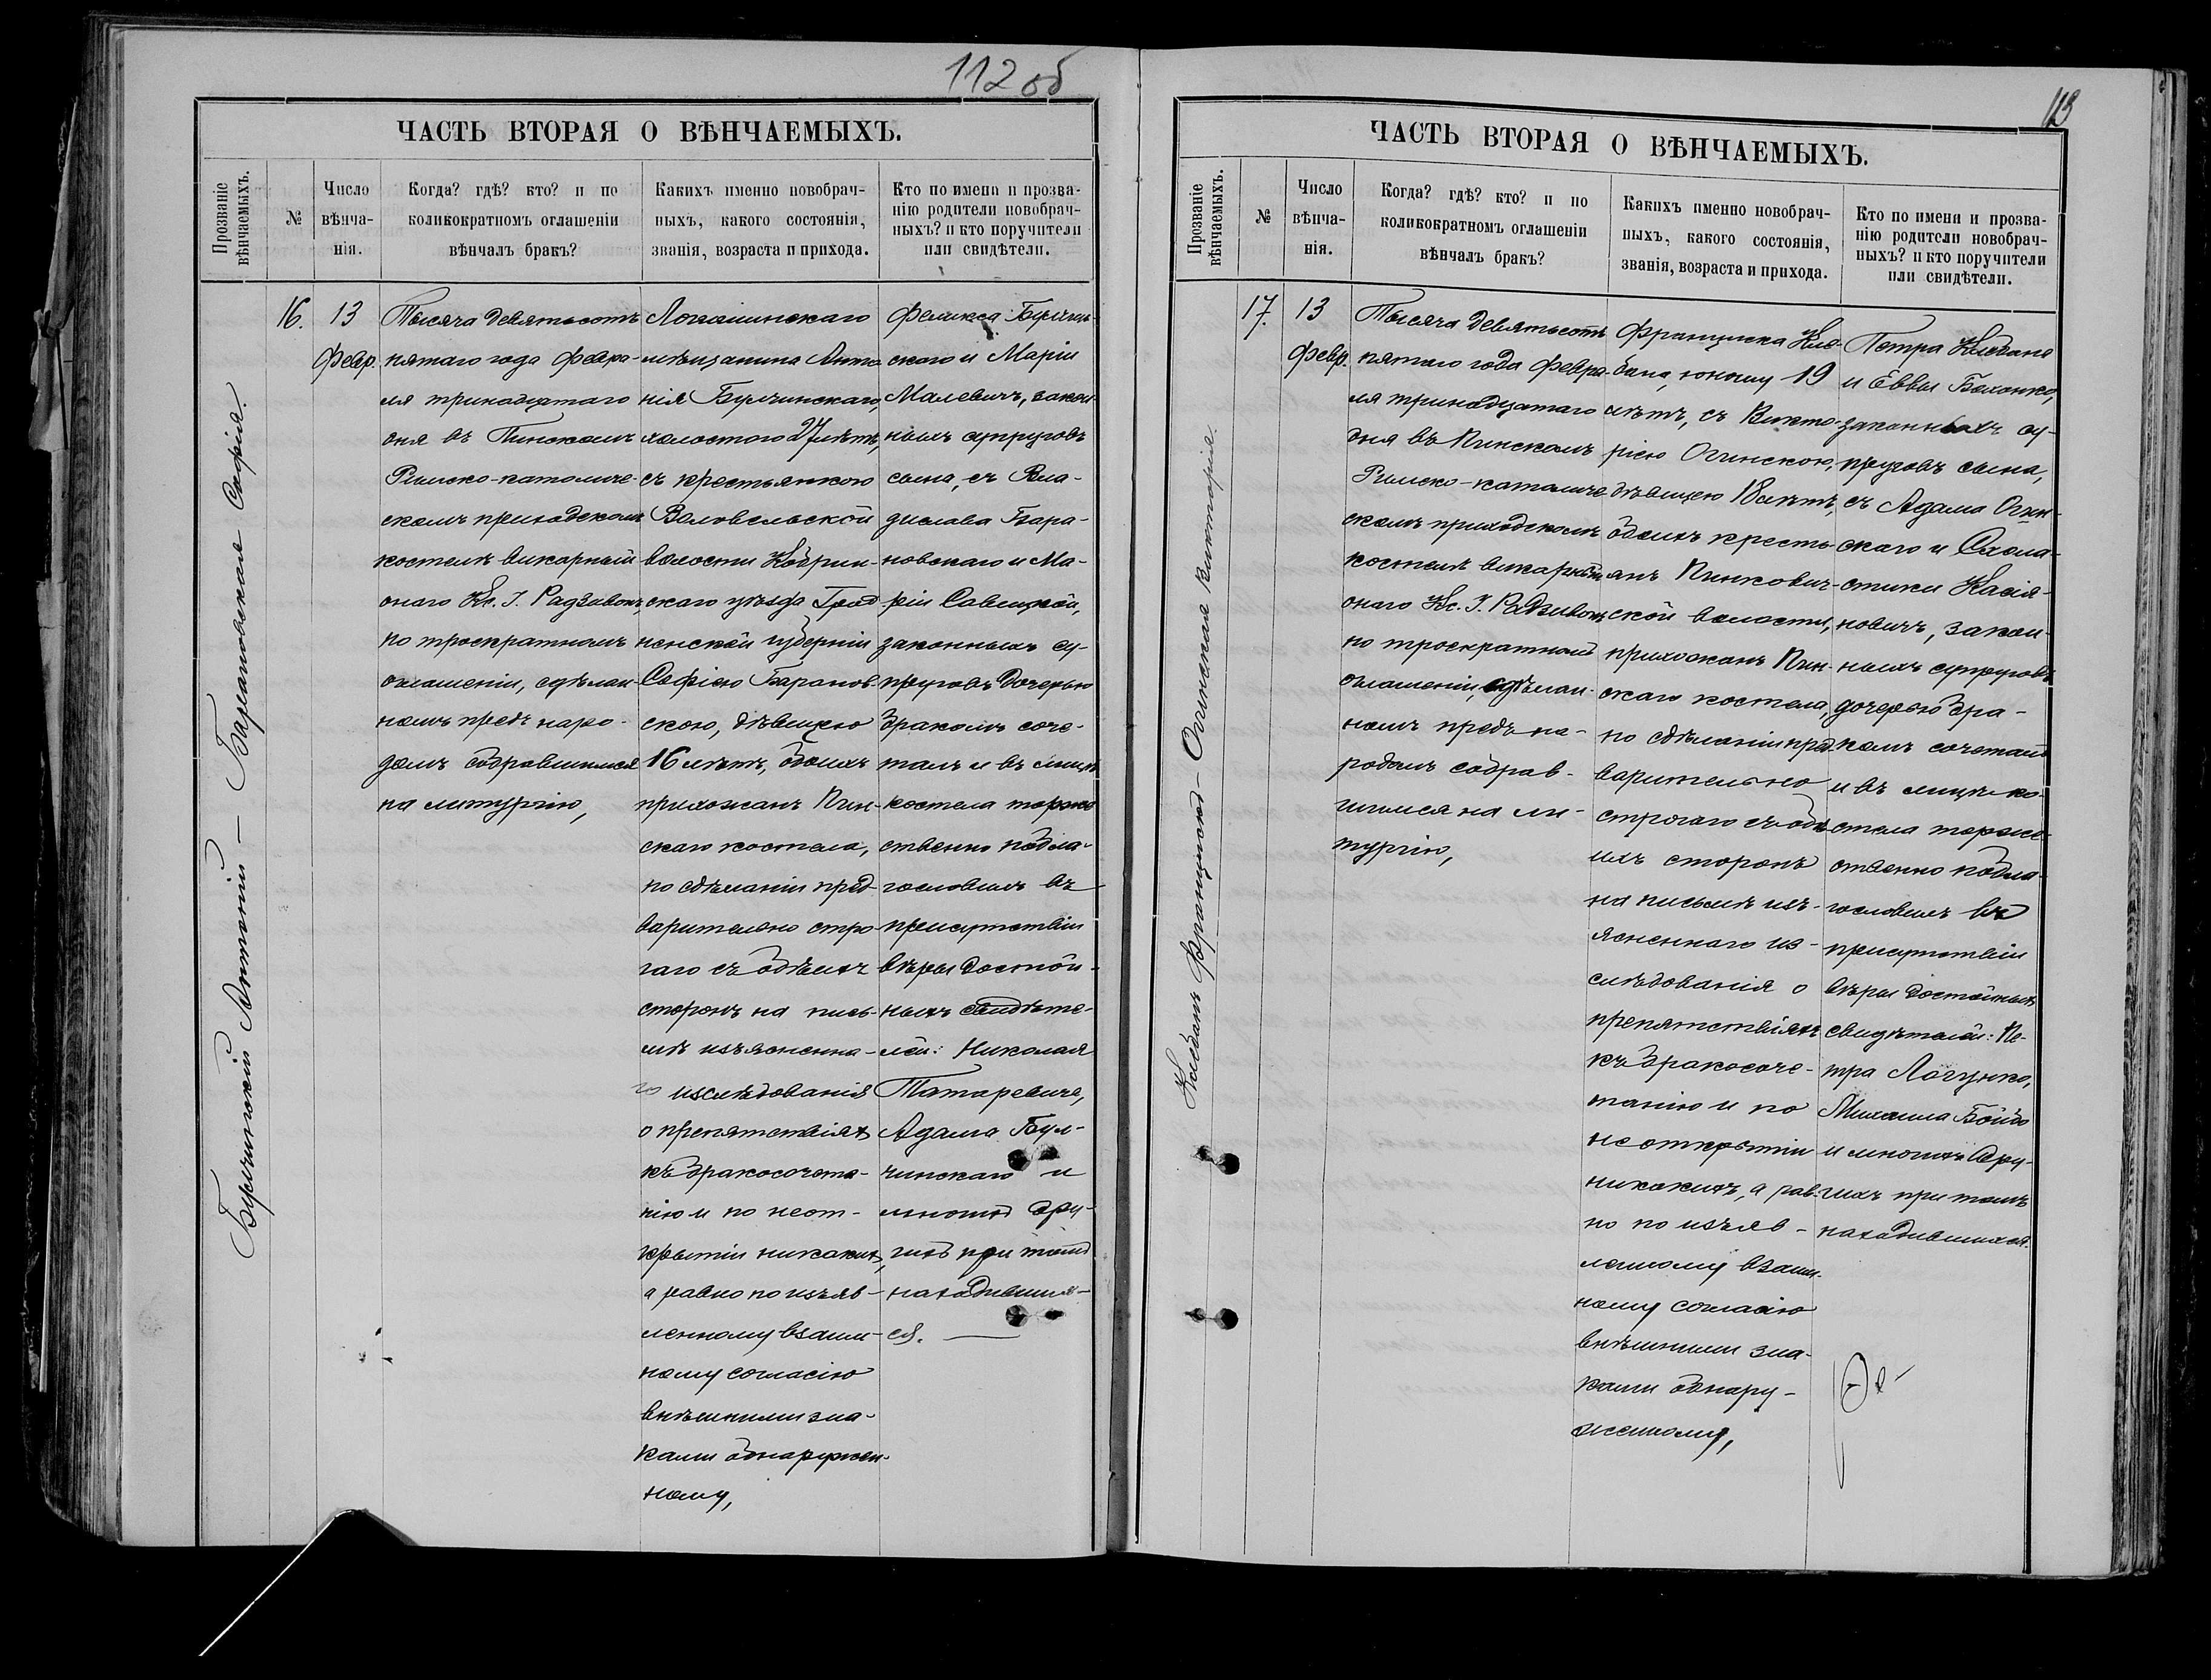 112 об
ЧАСТЬ ВТОРАЯ О ВѢНЧАЕМЫХЪ.
Прозваніе
вѣнчаемыхъ.
№
Число
вѣнча-
нія.
Когда? гдѣ? кто? и по
коликократномъ оглашеніи
вѣнчалъ бракъ?
Какихъ именно новобрач-
ныхъ, какого состоянія,
званія, возраста и прихода.
Кто по имени и прозва-
нію родители новобрач-
ныхъ? и кто поручители
или свидѣтели.
Булчинскій Антоній – Барановская Софія.
16.
13
Февр.
Тысяча девятьсотъ
пятаго года февра-
ля тринадцатаго
дня въ Пинскомъ
Римско-католиче-
скомъ приходскомъ
костелѣ викарный
онаго Кс. I. Радзивонъ
по троекратномъ
оглашеніи, сдѣлан-
номъ предъ наро-
домъ собравшимся
на литургію,
Логишинскаго
мѣщанина Анто-
нія Булчинскаго,
холостого 27 лѣтъ,
съ крестьянкою
Воловельской
волости Кобрин-
скаго уѣзда Грод
ненской губерніи
Софіею Баранов-
скою, дѣвицею
16 лѣтъ, обоихъ
прихожанъ Пин-
скаго костела,
по сдѣланіи пред-
варительно стро-
гаго съ обѣихъ
сторонъ на пись-
мѣ изъясненна-
го изслѣдованія
о препятствіяхъ
къ бракосочета-
нію и по неот-
крытіи никакихъ,
а равно по изъяв-
ленному взаим-
ному согласію
внѣшними зна-
ками обнаружен-
ному,
Феликса Булчин-
скаго и Маріи
Малевичъ, закон
ныхъ супруговъ
сына, съ Вла-
дислава Бара-
новскаго и Ма-
ріи Савицкой,
законныхъ су-
пруговъ дочерью
бракомъ соче-
талъ и въ лицѣ
костела торже
ственно побла-
гословилъ въ
присутствіи
вѣры достой-
ныхъ свидѣте-
лей: Николая
Татаревича,
Адама Бул-
чинскаго и
многихъ дру-
гихъ при томъ
находивших-
ся.
113
ЧАСТЬ ВТОРАЯ О ВѢНЧАЕМЫХЪ.
Прозваніе
вѣнчаемыхъ.
№
Число
вѣнча-
нія.
Когда? гдѣ? кто? и по
коликократномъ оглашеніи
вѣнчалъ бракъ?
Какихъ именно новобрач-
ныхъ, какого состоянія,
званія, возраста и прихода.
Кто по имени и прозва-
нію родители новобрач-
ныхъ? и кто поручители
или свидѣтели.
Клебанъ Францискъ – Огинская Викторія.
17.
13
Февр.
Тысяча девятьсотъ
пятаго года февра-
ля тринадцатаго
дня въ Пинскомъ
Римско-католиче
скомъ приходскомъ
костелѣ викарный
онаго Кс. I. Радзивонъ
по троекратномъ
оглашеніи, сдѣлан-
номъ предъ на-
родомъ собрав-
шимся на ли-
тургію,
Франциска Кле-
бана, юношу 19
лѣтъ, съ Викто-
ріею Огинскою,
дѣвицею 18 лѣтъ,
обоихъ кресть-
янъ Пинкович-
ской волости,
прихожанъ Пин-
скаго костела,
по сдѣланіи пред
варительно
строгаго съ обѣ
ихъ сторонъ
на письмѣ изъ-
ясненнаго из-
слѣдованія о
препятствіяхъ
къ бракосоче-
танію и по
не открытіи
никакихъ, а рав-
но по изъяв-
ленному взаим-
ному согласію
внѣшними зна-
ками обнару-
женному,
Петра Клебана
и Еввы Белонко,
законныхъ су-
пруговъ сына,
съ Адама Огин-
скаго и Схола-
стики Касія-
новичъ, закон-
ныхъ супруговъ
дочерью бра-
комъ сочеталъ
и въ лицѣ ко-
стела торже-
ственно побла-
гословилъ въ
присутствіи
вѣры достойныхъ
свидѣтелей: Пе-
тра Логунко,
Михаила Бойдо
и многихъ дру-
гихъ при томъ
находившихся.